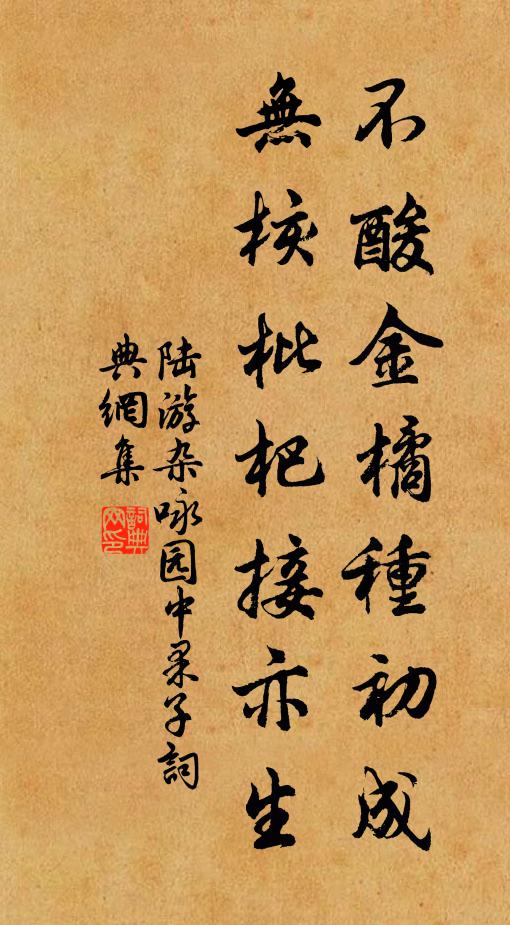 不酸金橘種初成
無核枇杷接亦生
陆游杂咏园中果子詞
典網集
詞典網印